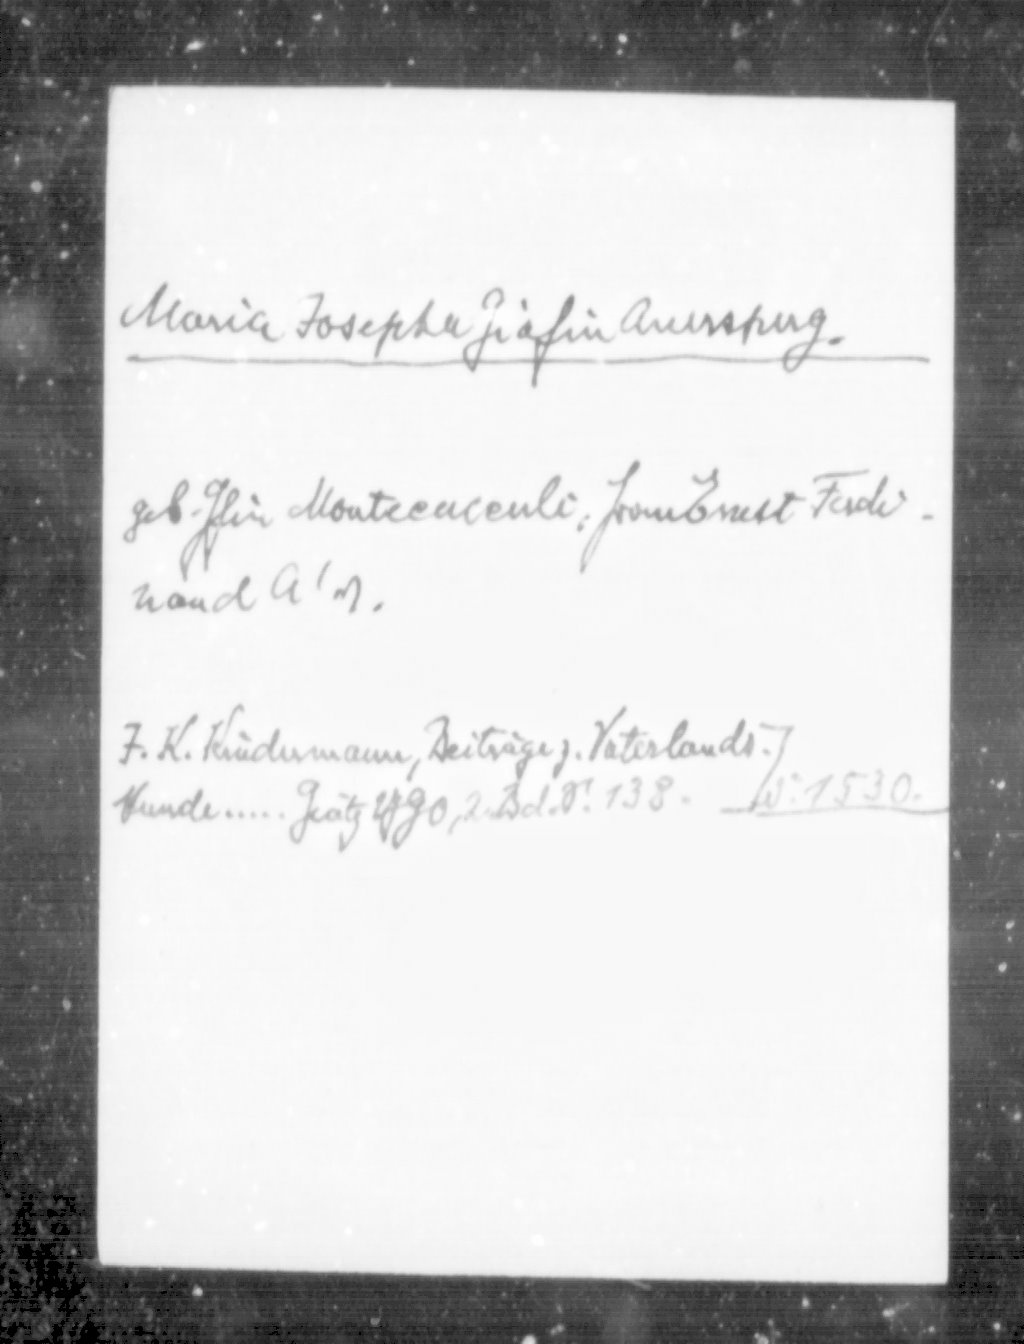 Maria Josepha Gräfin Auersperg.
geb. Gfin Montecuccoli, Frau Ernst Ferdi-
nand A's.
J. K. Kindermann, Beiträge z. Vaterlands-
kunde..... Grätz 1790, 2. Bd. S. 138. S: 1530.